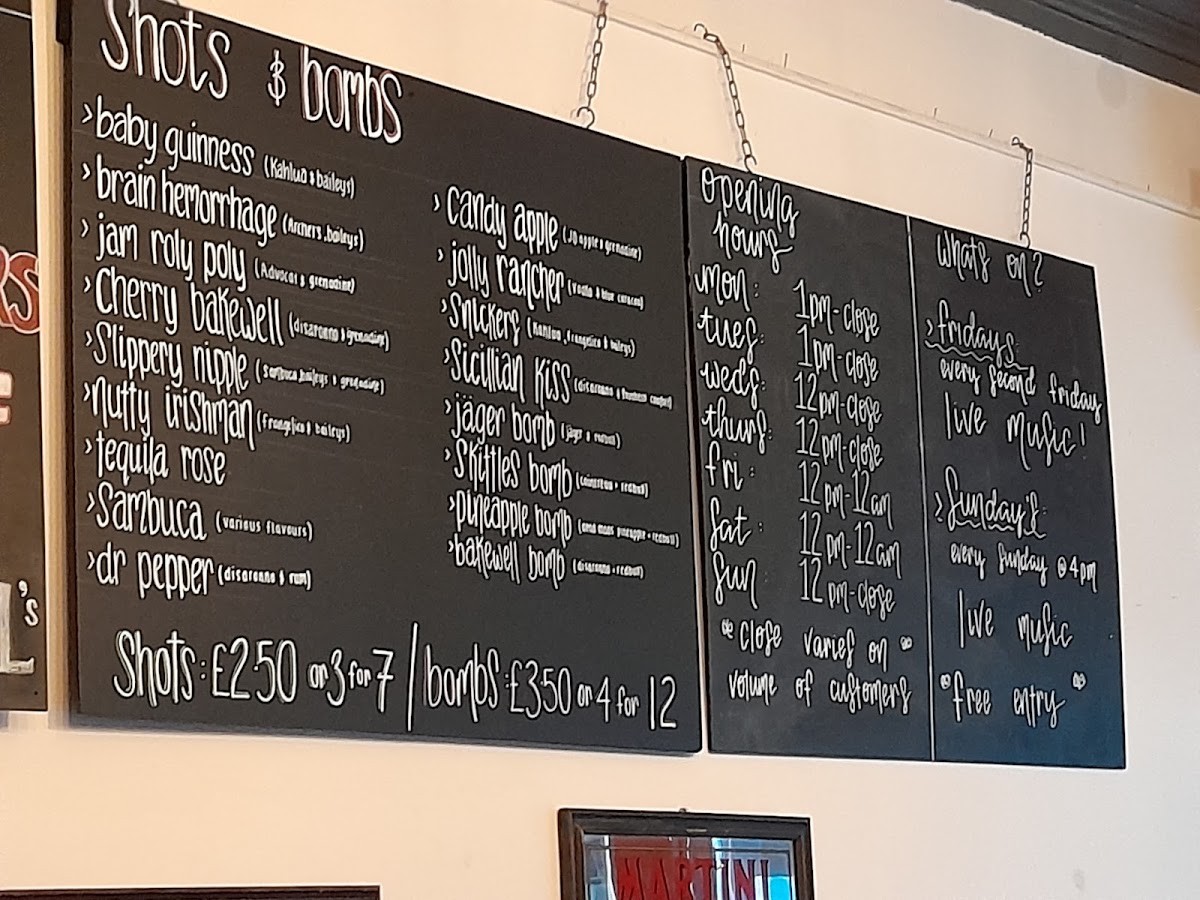 Shots & bombs
>baby guinness (Kahlua & baileys)
>brain hemorrhage (Archers, baileys)
>jam roly poly (Advocat & grenadine)
>Cherry bakewell (disaronno & grenadine)
>Slippery nipple (Sambuca, baileys & grenadine)
>Nutty irishman (frangelico & baileys)
>tequila rose
>Sambuca (various flavours)
>dr pepper (disaronno & rum)
>Candy apple (JD apple & grenadine)
>jolly rancher (Vodka & blue curacao)
>Snickers (Kahlua, frangelico & baileys)
>Sicilian Kiss (disaronno & Southern comfort)
>jäger bomb
>Skittles bomb (Cointreau + redbull)
>pineapple bomb
>bakewell bomb (disaronno + redbull)
Shots: £250 or 3 for 7 / bombs: £350 or 4 for 12
Opening
hours
mon: 1pm-close
tues: 1pm-close
weds: 12pm-close
thurs: 12pm-close
fri: 12pm-12am
Sat: 12pm-12am
Sun 12pm-close
* Close varies on *
volume of customers
what's on?
>fridays:
every second friday
live music!
>Sunday's:
every Sunday @ 4pm
live music
*free entry*
RS
's
MARTINI